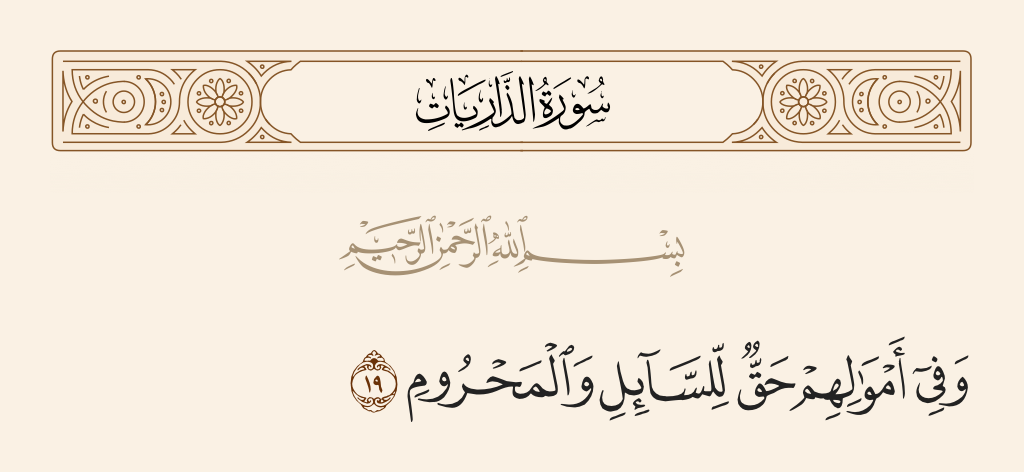 سُورَةُ الذَّارِيَاتِ
بِسْمِ ٱللَّهِ ٱلرَّحْمَٰنِ ٱلرَّحِيمِ
وَفِىٓ أَمْوَٰلِهِمْ حَقٌّ لِّلسَّآئِلِ وَٱلْمَحْرُومِ ١٩